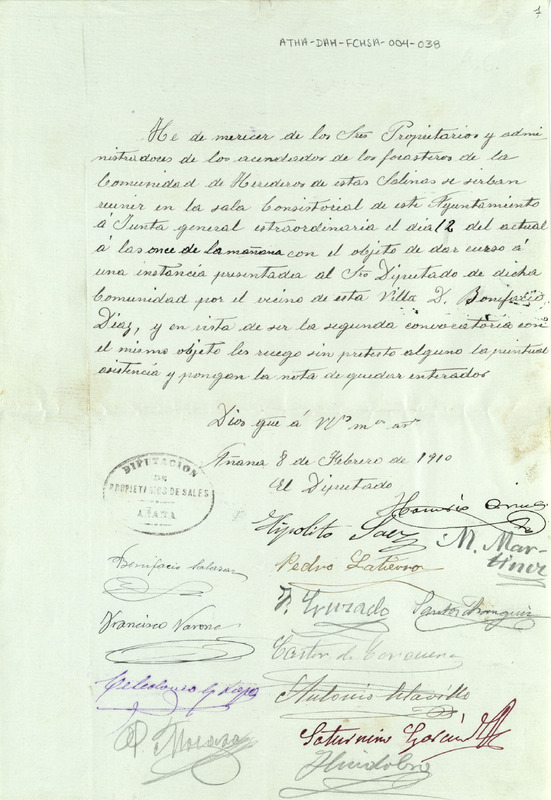 1
ATHA-DAH-FCHSA-004-038
He de merecer de los Sres Propietarios y admi
nistradores de los acendados de los forasteros de la
Comunidad de Herederos de estas Salinas se sirban
reunir en la sala Consistorial de este Ayuntamiento
á Junta general estraordinaria el dia 12 del actual
á las once de la mañana con el objeto de dar curso á
una instancia presentada al Sro Diputado de dicha
Comunidad por el vecino de esta Villa D. Bonifacio
Diaz, y en vista de ser la segunda convocatoria con
el mismo objeto les ruego sin pretesto alguno la puntual
asistencia y pongan la nota de quedar enterados
Dios gue á VVs ms as
Añana 8 de Febrero de 1910
El Diputado
DIPUTACION
DE
PROPIETARIOS DE SALES
AÑANA
Hipolito Saez
M. Mar-
tinez
Bonifacio Salazar
Pedro Gatierra
Francisco Varona
Castor de
Antonio
Saturnino García
Huidobro